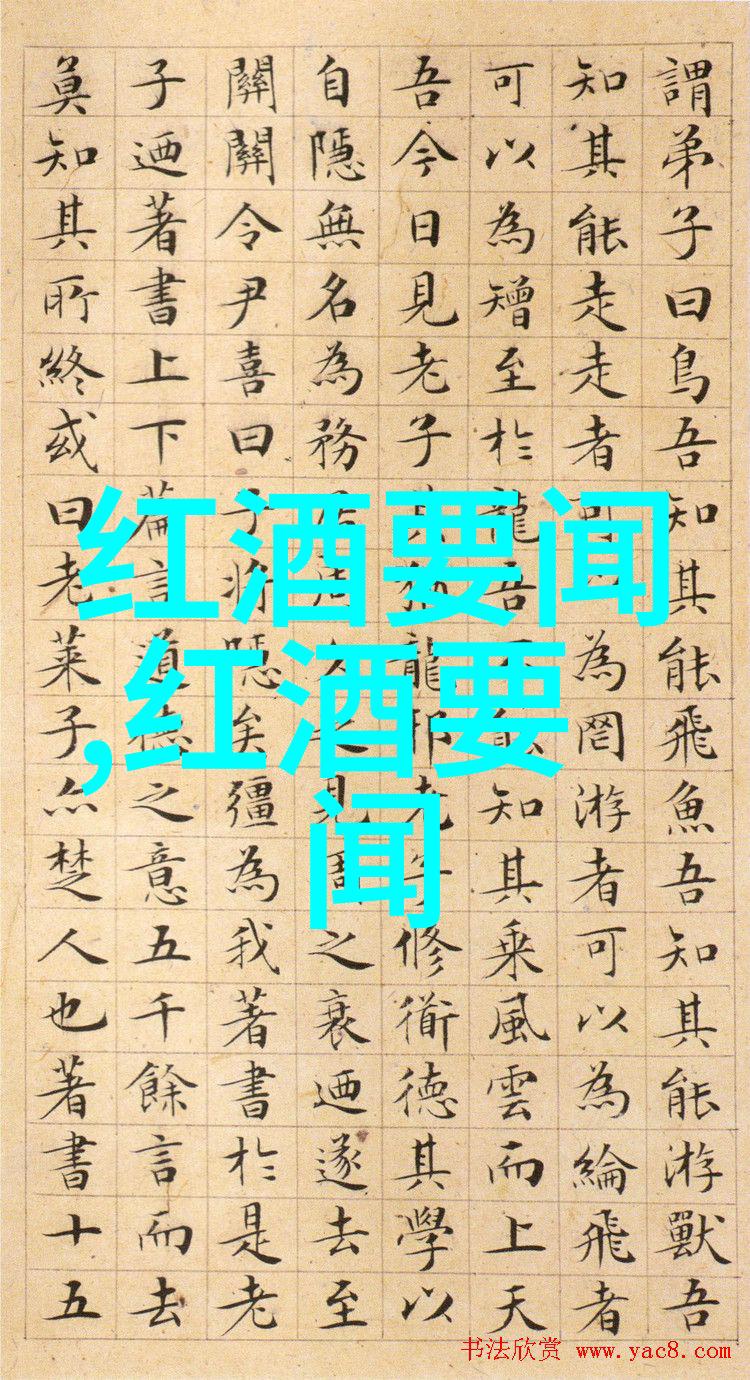 謂弟子曰鳥吾知其能飛魚吾知其能游獸吾
知其能走走者可以為罔游者可以為綸飛者
可以為矰至於龍吾不能知其乘風雲而上天
吾今日見老子其猶龍邪老子修衜德其學以
自隱無名為務居周久之見周之衰迺遂去至
關關令尹喜曰子將隱矣彊為我著書於是老
子迺著書上下篇言道德之意五千餘言而去
莫知其所終或曰老萊子亦楚人也著書十五
红酒要闻
,红酒要
闻
书法欣赏 www.yac8.com